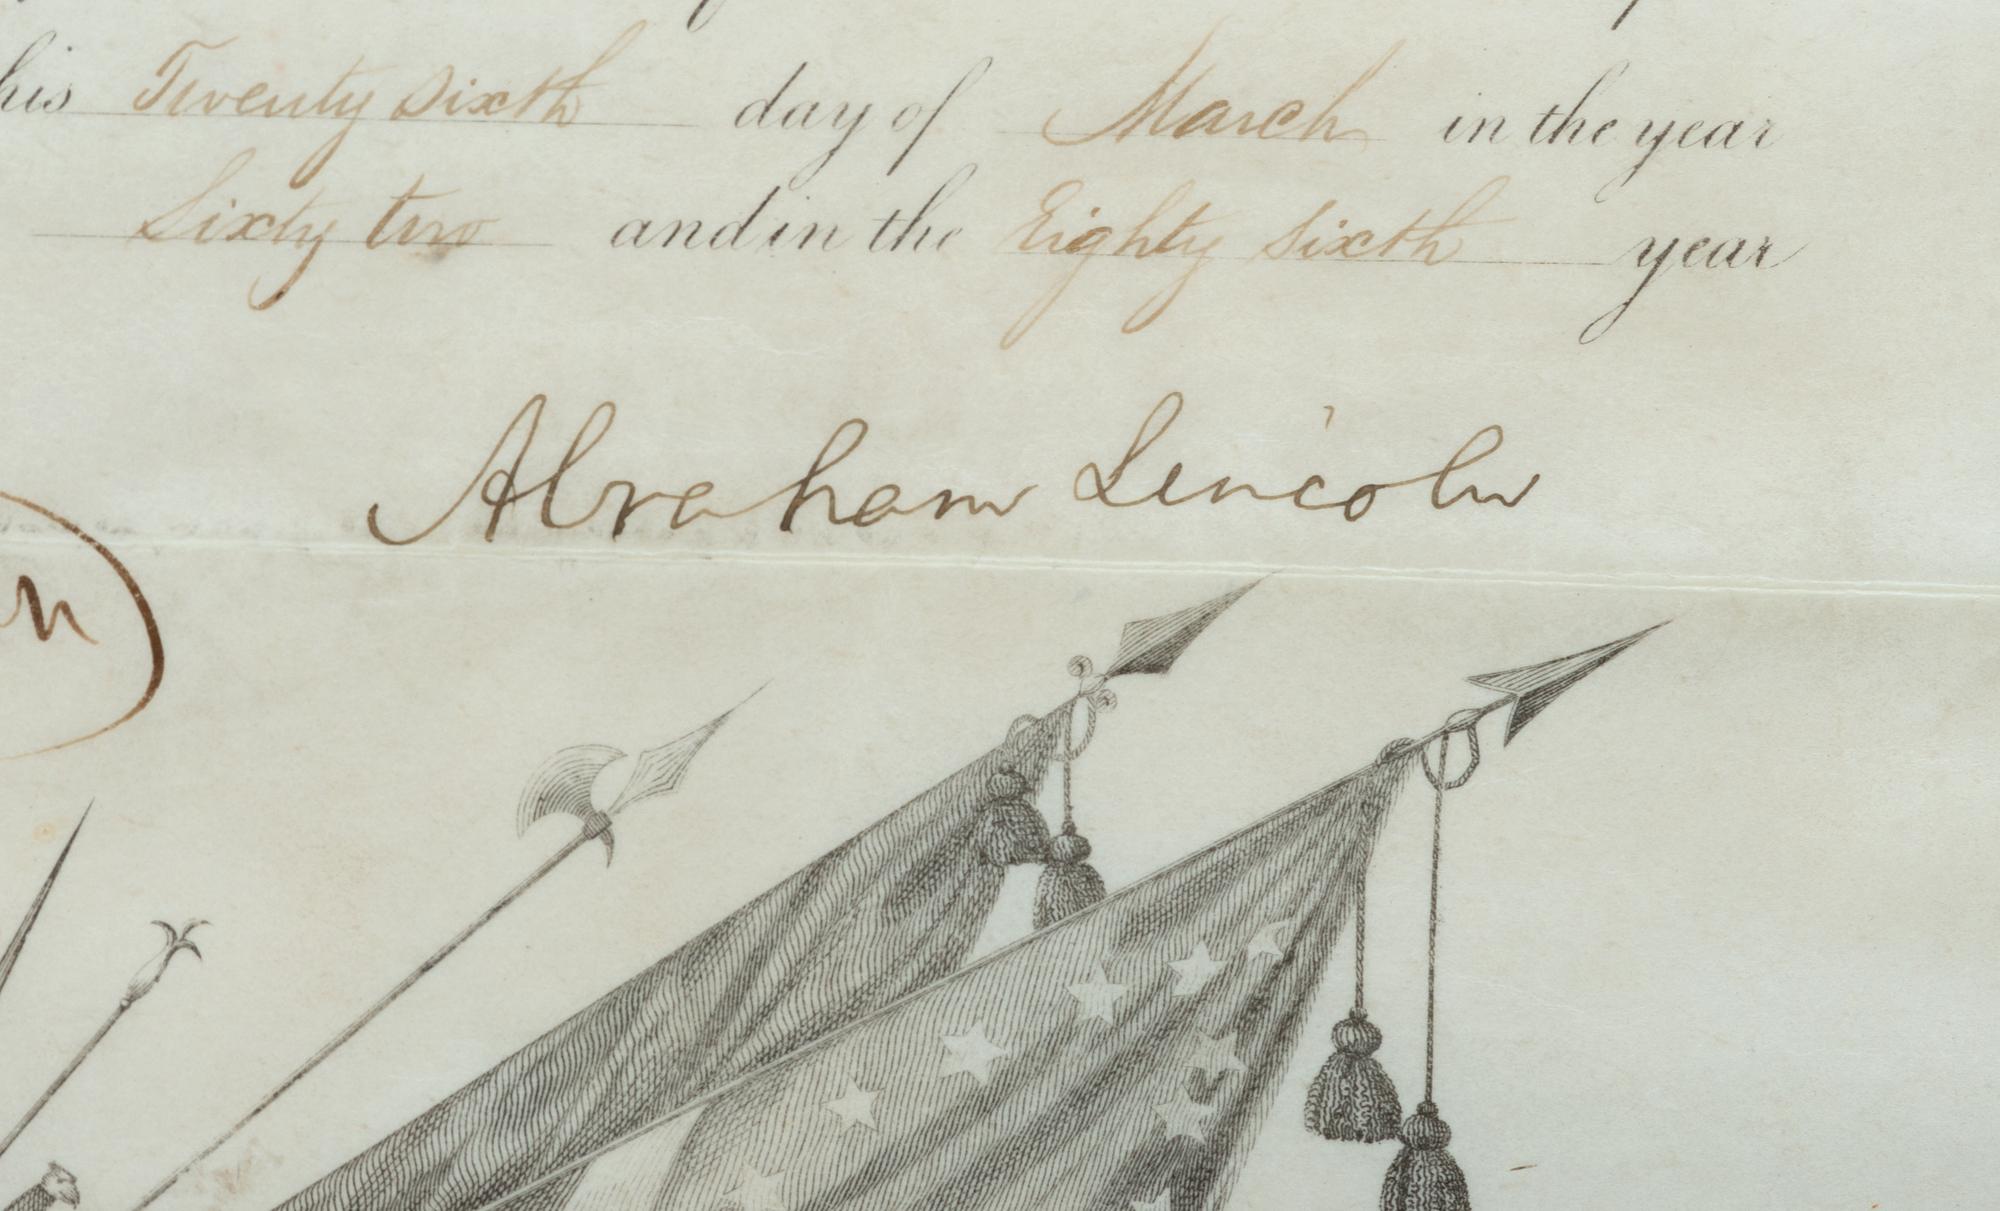 his Twenty sixth day of March in the year
Sixty two and in the Eighty sixth year
Abraham Lincoln